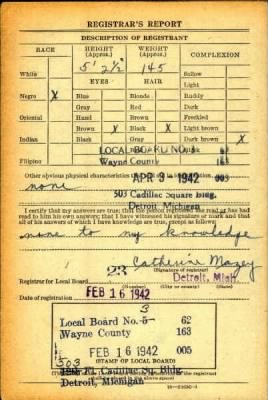 REGISTRAR'S REPORT
DESCRIPTION OF REGISTRANT
RACE HEIGHT (Approx.) WEIGHT (Approx.) COMPLEXION
5' 2½" 145
White Sallow
EYES HAIR Light
Negro X Blue Blonde Ruddy
Gray Red Dark
Oriental Hazel Brown Freckled
Brown X Black X Light brown
Indian Black Gray Dark brown X
LOCAL BOARD NO. 3
Filipino Wayne County 163
APR 3 1942 003
Other obvious physical characteristics
none
503 Cadillac Square Bldg.
Detroit Michigan
I certify that my answers are true; that the person registered has read or has had
read to him his own answers; that I have witnessed his signature or mark and that
all of his answers of which I have knowledge are true, except as follows:
none to my knowledge
Catherine Mazey
(Signature of registrar)
Registrar for Local Board 23 Detroit, Mich
(Number) (City or county) (State)
Date of registration FEB 16 1942
3
Local Board No. 5 62
Wayne County 163
FEB 16 1942 005
503
Fl. Cadillac Sq. Bldg.
(STAMP OF LOCAL BOARD)
Detroit, Michigan